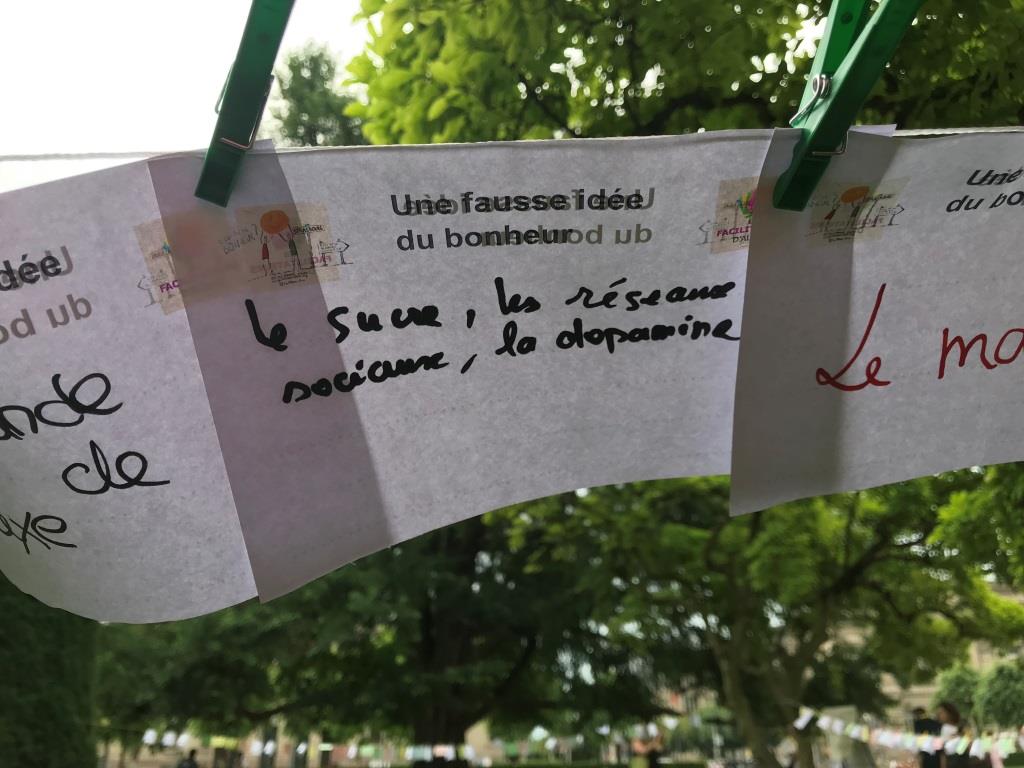 idée
ande
de
Une fausse idée
du bonheur
le sucre, les réseaux
sociaux, la dopamine
Une
du bo
Le ma